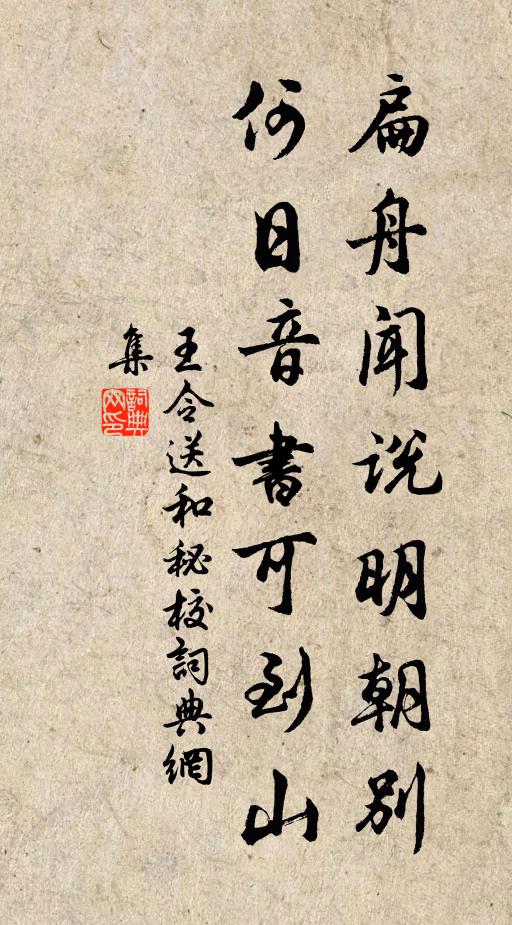 扁舟闻说明朝别
何日音書可到山
王令送和秘校詞典網
集
詞典网印